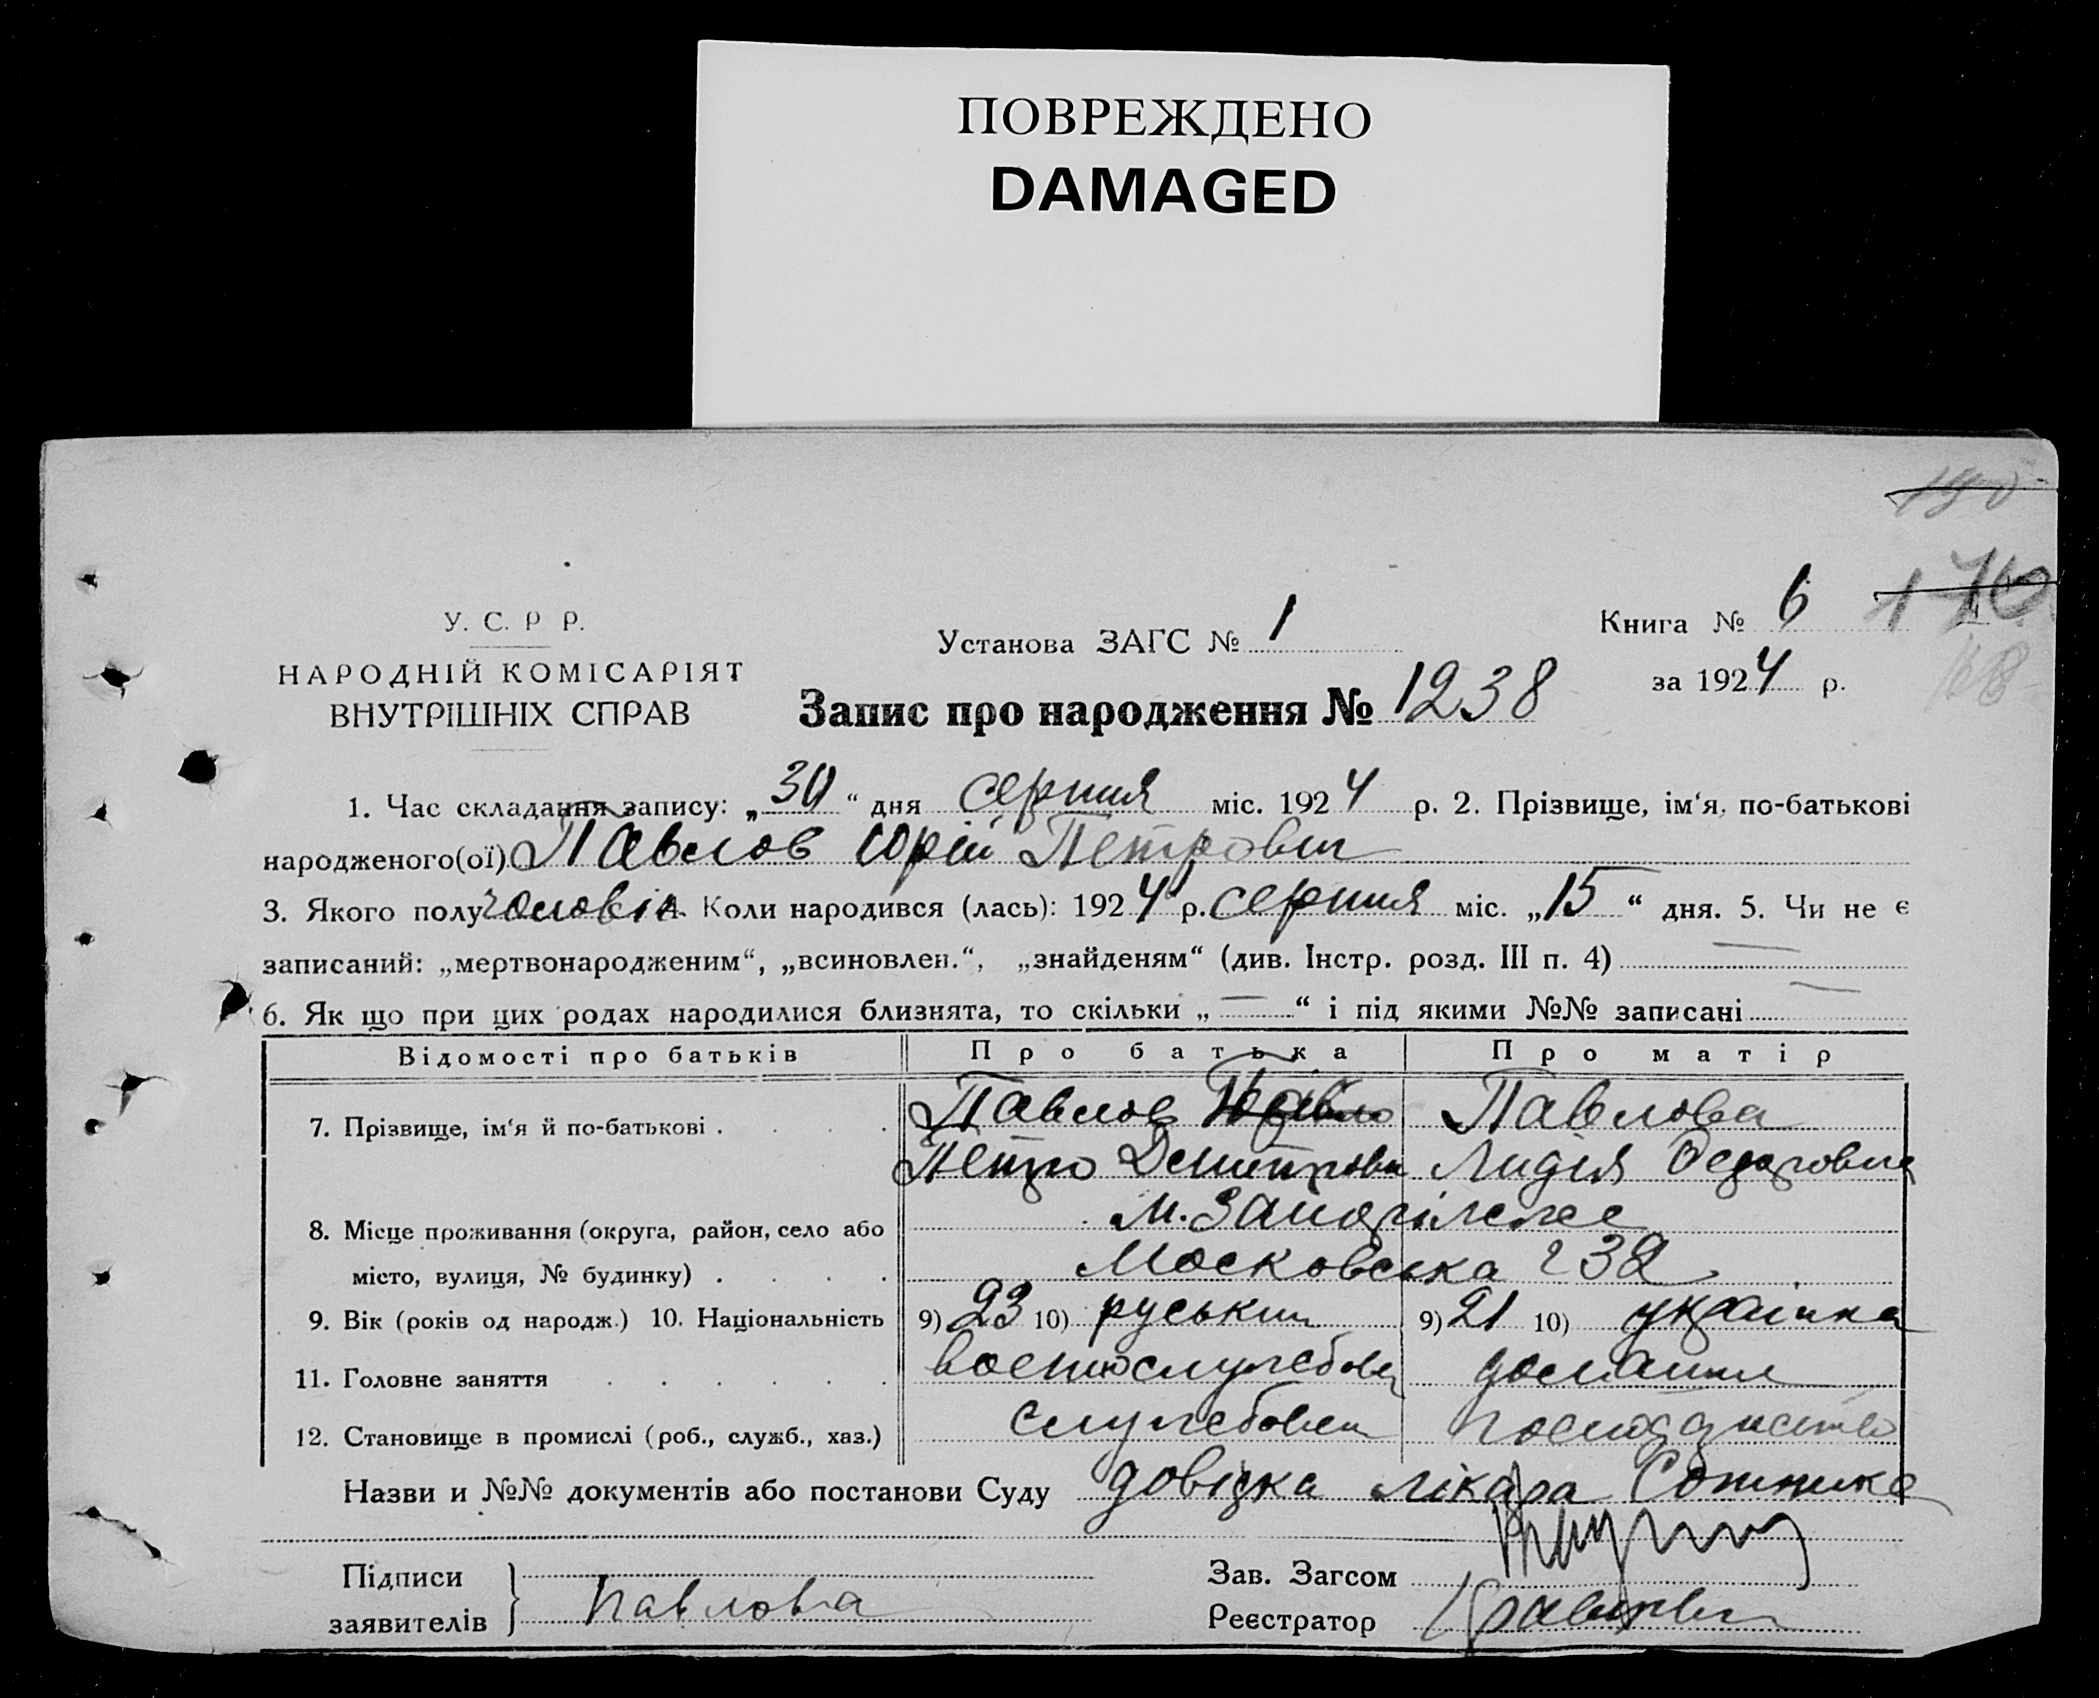 ПОВРЕЖДЕНО
DAMAGED
У. С. Р Р.
НАРОДНІЙ КОМІСАРІЯТ
ВНУТРІШНІХ СПРАВ
Установа ЗАГС № 1
Книга № 6
170
за 1924 р.
Запис про народження № 1238
1. Час складання запису: „30“ дня серпня міс. 1924 р. 2. Прізвище, ім‘я, по-батькові
народженого(ої) Павлов Юрій Петрович
3. Якого полу чоловік 4. Коли народився (лась): 1924 р. серпня міс. „15“ дня. 5. Чи не є
записаний: „мертвонародженим“, „всиновлен.“, „знайденям“ (див. Інстр. розд. III п. 4) —
6. Як що при цих родах народилися близнята, то скільки „—“ і під якими №№ записані —
Відомості про батьків Про батька Про матір
7. Прізвище, ім‘я й по-батькові . . . . Павлов Павлова
Петро Дмитрович Лидія Федоровна
8. Місце проживання (округа, район, село або м. Запоріжже
місто, вулиця, № будинку) . . . . Московська 232
9. Вік (років од народж.) 10. Національність 9) 23 10) руський 9) 21 10) українка
11. Головне заняття . . . . . . военнослужбовец домашнє
12. Становище в промислі (роб., служб., хаз.) службовец господарство
Назви и №№ документів або постанови Суду довідка лікаря Сотника
Підписи
заявителів } Павлова
Зав. Загсом
Реєстратор